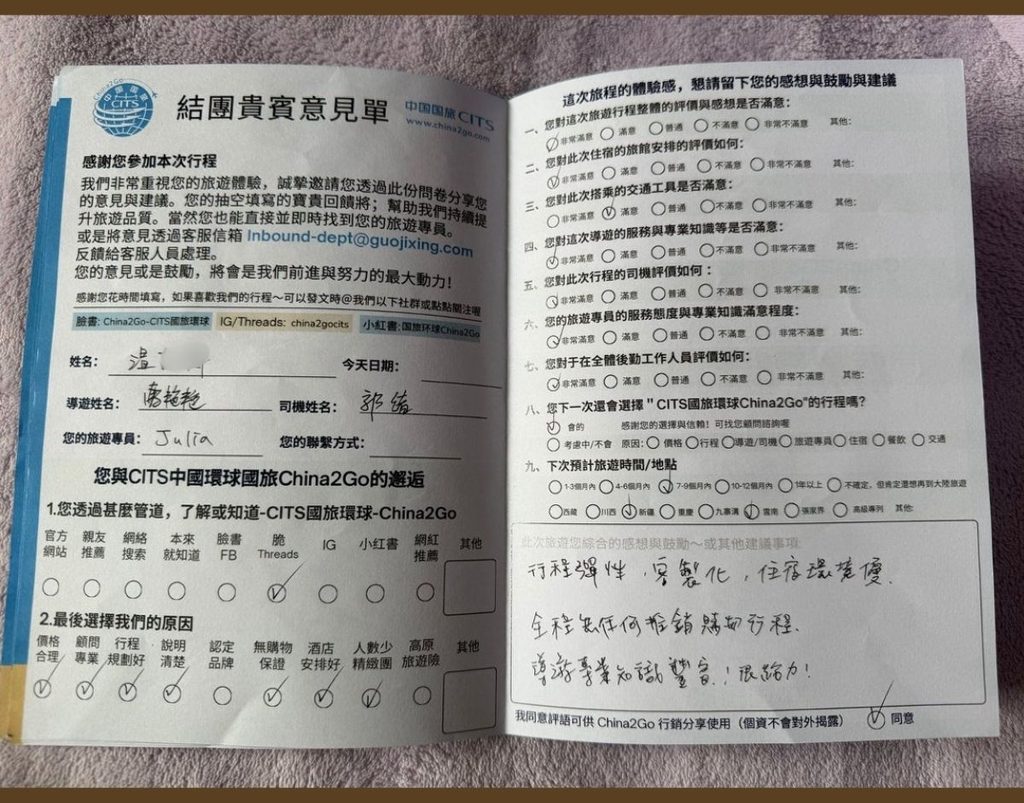 China2Go
中国国旅
CITS
結團貴賓意見單
中国国旅CITS
www.china2go.com
感謝您參加本次行程
我們非常重視您的旅遊體驗，誠摯邀請您透過此份問卷分享您
的意見與建議。您的抽空填寫的寶貴回饋將；幫助我們持續提
升旅遊品質。當然您也能直接並即時找到您的旅遊專員。
或是將意見透過客服信箱 Inbound-dept@guojixing.com
反饋給客服人員處理。
您的意見或是鼓勵，將會是我們前進與努力的最大動力！
感謝您花時間填寫，如果喜歡我們的行程～可以發文時@我們以下社群或點點關注喔
臉書: China2Go-CITS國旅環球 IG/Threads: china2gocits 小紅書:国旅环球China2Go
姓名： 溫 今天日期：
導遊姓名： 司機姓名： 郭
您的旅遊專員： Julia 您的聯繫方式：
您與CITS中國環球國旅China2Go的邂逅
1.您透過甚麼管道，了解或知道-CITS國旅環球-China2Go
官方網站 親友推薦 網絡搜索 本來就知道 臉書FB 脆Threads IG 小紅書 網紅推薦 其他
2.最後選擇我們的原因
價格合理 顧問專業 行程規劃好 說明清楚 認定品牌 無購物保證 酒店安排好 人數少精緻團 高原旅遊險 其他
這次旅程的體驗感，懇請留下您的感想與鼓勵與建議
一、您對這次旅遊行程整體的評價與感想是否滿意：
非常滿意 滿意 普通 不滿意 非常不滿意 其他:
二、您對此次住宿的旅館安排的評價如何：
非常滿意 滿意 普通 不滿意 非常不滿意 其他:
三、您對此次搭乘的交通工具是否滿意：
非常滿意 滿意 普通 不滿意 非常不滿意 其他:
四、您對這次導遊的服務與專業知識等是否滿意：
非常滿意 滿意 普通 不滿意 非常不滿意 其他:
五、您對此次行程的司機評價如何：
非常滿意 滿意 普通 不滿意 非常不滿意 其他:
六、您的旅遊專員的服務態度與專業知識滿意程度：
非常滿意 滿意 普通 不滿意 非常不滿意 其他:
七、您對于在全體後勤工作人員評價如何：
非常滿意 滿意 普通 不滿意 非常不滿意 其他:
八、您下一次還會選擇 " CITS國旅環球China2Go"的行程嗎？
會的 感謝您的選擇與信賴！可找您顧問諮詢喔
考慮中/不會 原因： 價格 行程 導遊/司機 旅遊專員 住宿 餐飲 交通
九、下次預計旅遊時間/地點
1-3個月內 4-6個月內 7-9個月內 10-12個月內 1年以上 不確定，但肯定還想再到大陸旅遊
西藏 川西 新疆 重慶 九寨溝 雲南 張家界 高級專列 其他:
此次旅遊您綜合的感想與鼓勵～或其他建議事項:
行程彈性，客製化，住宿環境優.
全程無任何推銷購物行程.
導遊專業知識豐富！很給力！
我同意評語可供 China2Go 行銷分享使用（個資不會對外揭露） 同意